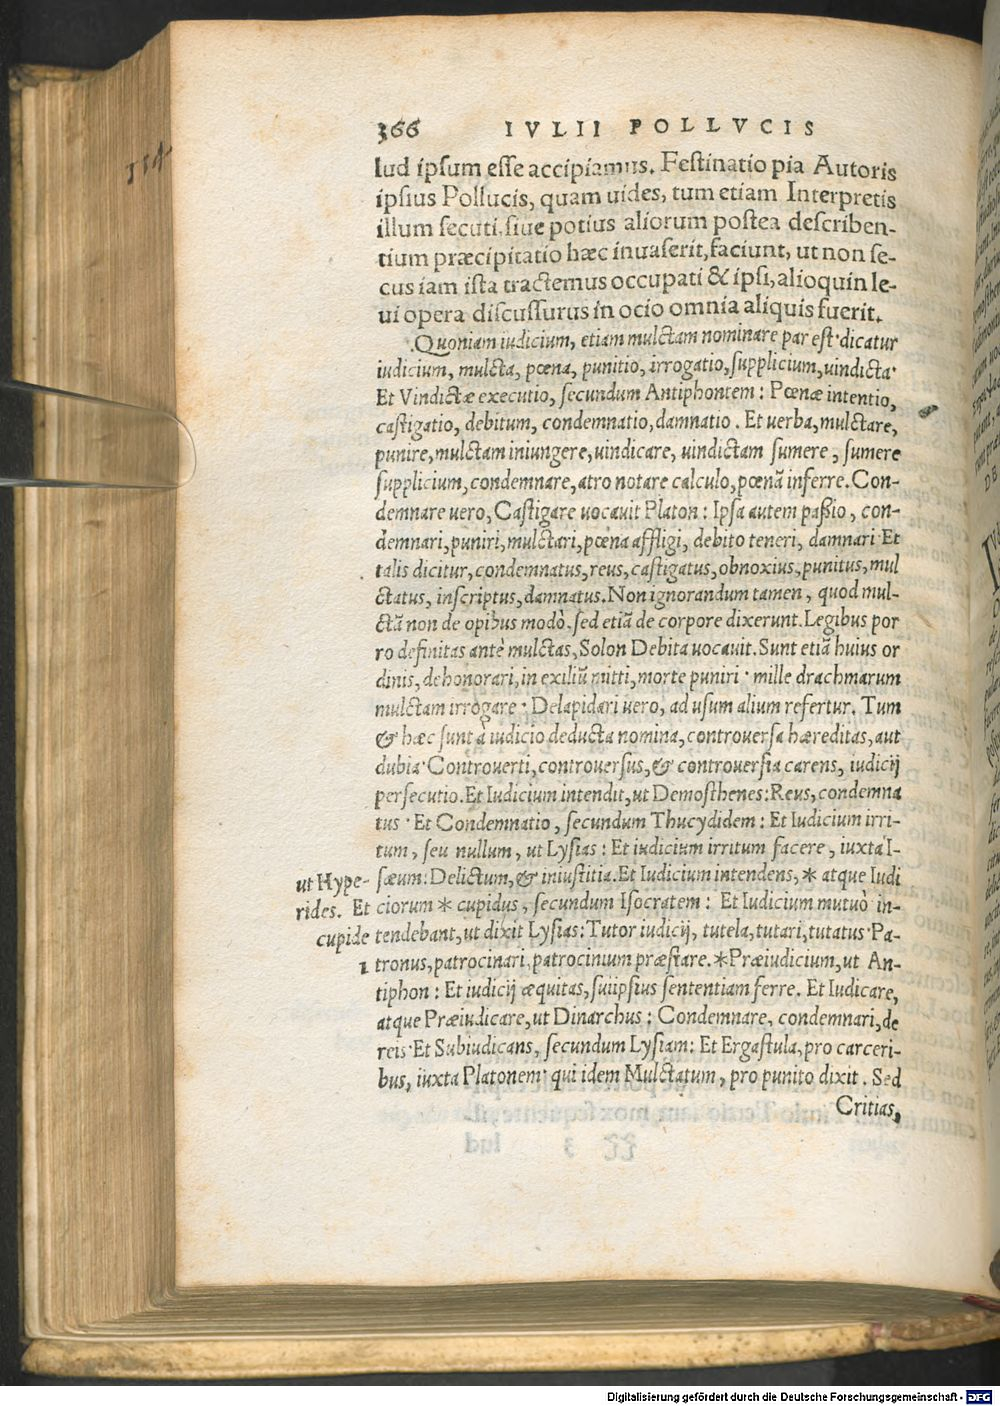 114
366 IVLII POLLVCIS
lud ipsum esse accipiamus. Festinatio pia Autoris
ipsius Pollucis, quam uides, tum etiam Interpretis
illum secuti, siue potius aliorum postea describen-
tium præcipitatio hæc inuaserit, faciunt, ut non se-
cus iam ista tractemus occupati & ipsi, alioquin le-
ui opera discussurus in ocio omnia aliquis fuerit.
Quoniam iudicium, etiam mulctam nominare par est· dicatur
iudicium, mulcta, pœna, punitio, irrogatio, supplicium, uindicta·
Et Vindictæ executio, secundum Antiphontem: Pœnæ intentio,
castigatio, debitum, condemnatio, damnatio. Et uerba, mulctare,
punire, mulctam iniungere, uindicare, uindictam sumere, sumere
supplicium, condemnare, atro notare calculo, pœnã inferre. Con-
demnare uero, Castigare uocauit Platon: Ipsa autem passio, con-
demnari, puniri, mulctari, pœna affligi, debito teneri, damnari· Et
talis dicitur, condemnatus, reus, castigatus, obnoxius, punitus, mul
ctatus, inscriptus, damnatus. Non ignorandum tamen, quod mul-
ctã non de opibus modò, sed etiã de corpore dixerunt. Legibus por
ro definitas antè mulctas, Solon Debita uocauit. Sunt etiã huius or
dinis, dehonorari, in exiliũ mitti, morte puniri· mille drachmarum
mulctam irrogare· Delapidari uero, ad usum alium refertur. Tum
& hæc sunt à iudicio deducta nomina, controuersa hæreditas, aut
dubia· Controuerti, controuersus, & controuersia carens, iudicij
persecutio. Et Iudicium intendit, ut Demosthenes: Reus, condemna
tus· Et Condemnatio, secundum Thucydidem: Et Iudicium irri-
tum, seu nullum, ut Lysias: Et iudicium irritum facere, iuxta I-
ut Hype- sæum: Delictum, & iniustitia. Et Iudicium intendens, * atque Iudi
rides. Et ciorum * cupidus, secundum Isocratem: Et Iudicium mutuò in-
cupide tendebant, ut dixit Lysias: Tutor iudicij, tutela, tutari, tutatus· Pa-
1 tronus, patrocinari, patrocinium præstare. * Præiudicium, ut An-
tiphon: Et iudicij æquitas, suiipsius sententiam ferre. Et Iudicare,
atque Præiudicare, ut Dinarchus: Condemnare, condemnari, de
reis· Et Subiudicans, secundum Lysiam: Et Ergastula, pro carceri-
bus, iuxta Platonem· qui idem Mulctatum, pro punito dixit. Sed
Critias,
Digitalisierung gefördert durch die Deutsche Forschungsgemeinschaft - DFG